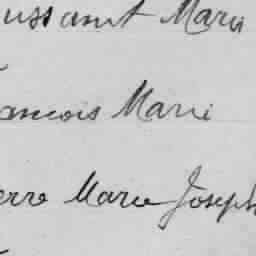 oussaint Marie
ancois Marie
erre Marie Joseph